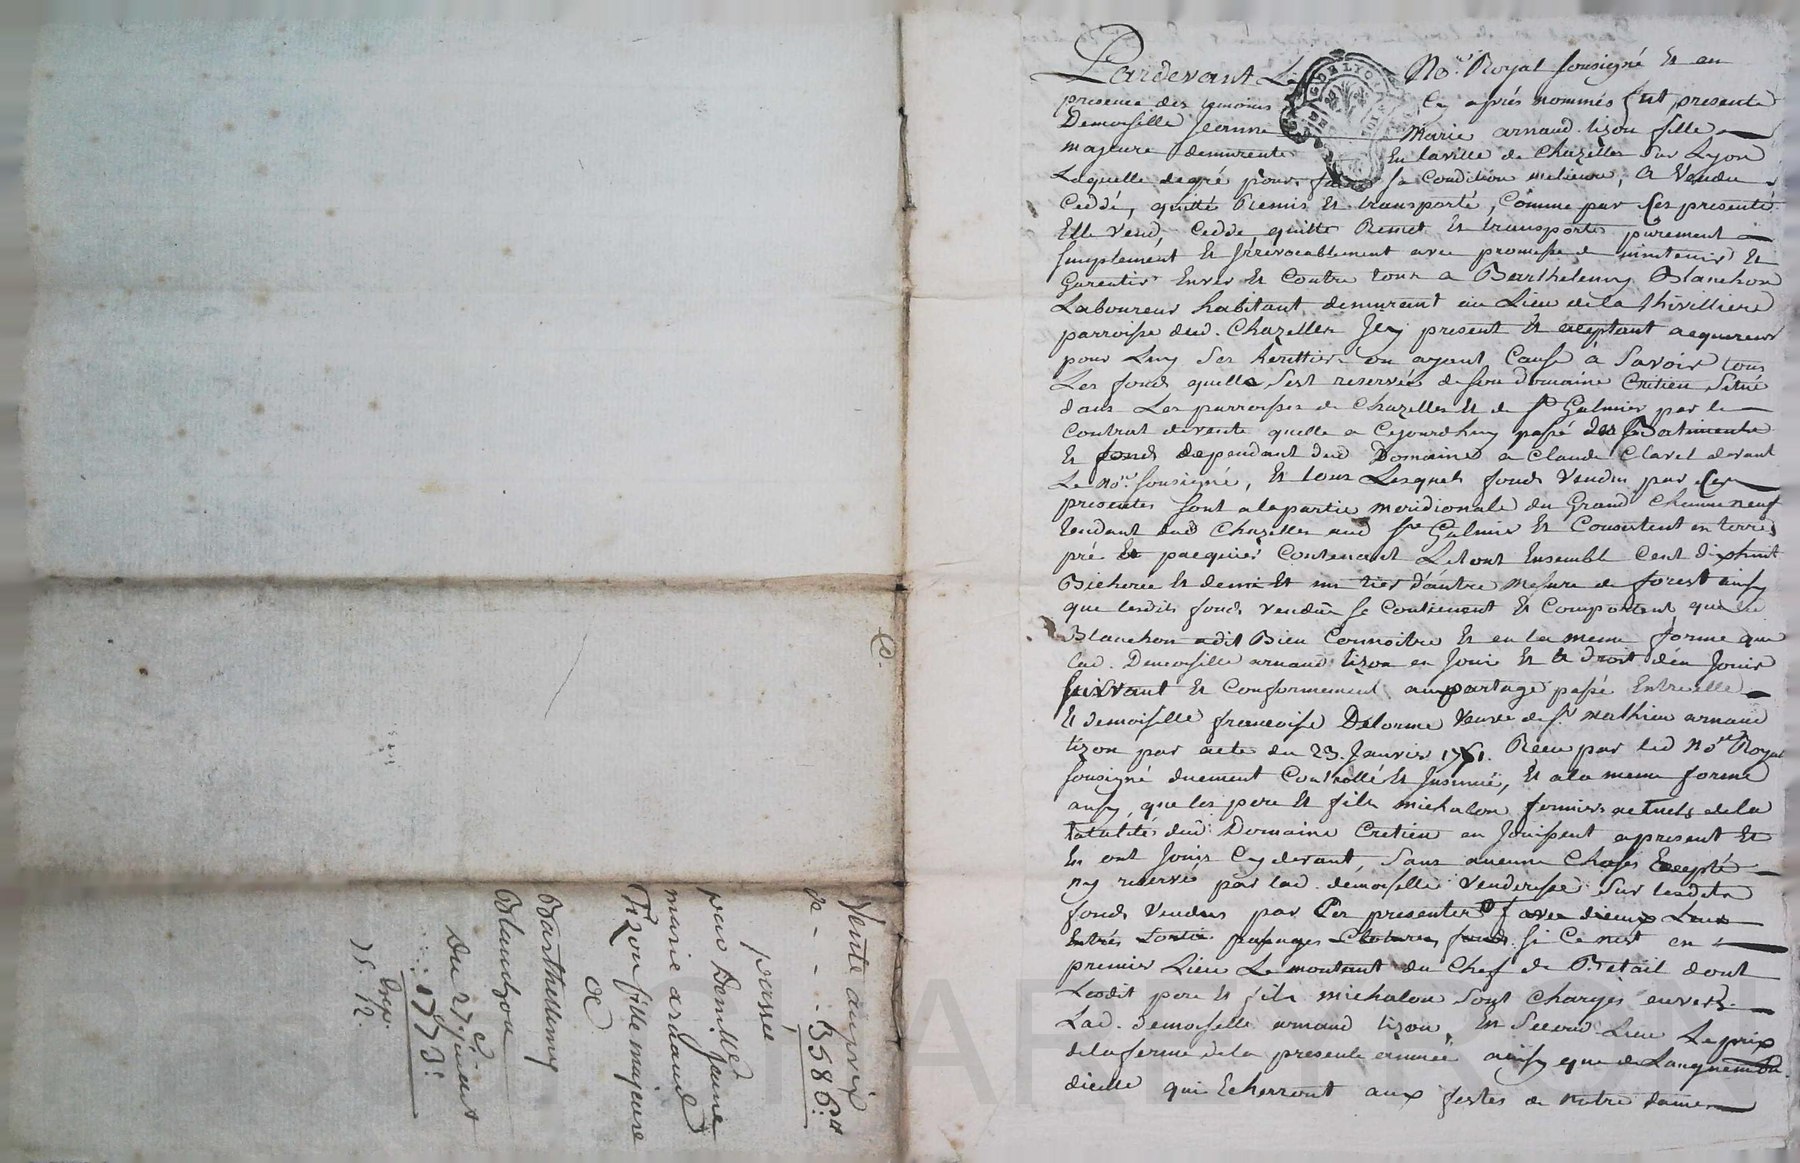 Pardevant Le No.re Royal sousigné Et en
presence des temoins Cy aprés nommés fut presente
Demoiselle jeanne Marie arnaud tizon fille
majeure demurente En laville de Chazelles sur Lyon
Laquelle degré pour faire sa Condition melieure, A Vendu
Ceddé, quitté Remis Et transporté, Comme par Ces presente
Elle Vend, Cedde quitte Remet Et transporte pûrement
simplement Et jrrevocablement avec promesse de mintenir Et
Garentir Envers Et Contre tous a Barthelemy Blanchon
Laboureur habitant demurant au Lieu de la thivilliere
parroisse dud. Chazelles jcy present Et aceptant acquereur
pour Luy Ses herittiers ou ayant Cause à Savoir tous
Les fonds quelle Sest reservée de son Domaine Cretien Situé
dans Les parroisses de Chazelles Et de St Galmier par le
Contrat de vente quelle a Cejourdhuy passé des Batiments
Et fonds dependant dud Domaine a Claude Clavel devant
Le No.re sousigné, Et tous Lesquels fonds Vendus par Ces
presentes sont alapartie meridionale du Grand Chemin neuf
tendant dud Chazelles aud St Galmier Et Consistent en terres
pré Et pacquier Contenant Letout Ensemble Cent dixhuit
Bicherée Et demi Et un tier d'autre mesure de forest ainsy
que lesdits fonds vendus se Contienent Et Comportent que led
Blanchon adit Bien Connoitre Et en la meme forme que
lad. Demoiselle arnaud tizon en Joui Et a droit d'en Jouir
suivant Et Conformement aupartage passé Entre elle
Et demoiselle francoise Delorme Veuve de sr mathieu arnaud
tizon par acte du 23. Janvier 1761. Receu par led No.re Royal
sousigné duement Controllé Et Insinué, Et ala meme forme
ausy, que les pere Et fils michalon fermiers actuels dela
totalité dud. Domaine Cretien en Jouissent apresent Et
En ont Joui Cy devant, Sans aucune Choses Excepté
ny reservé par lad. demoiselle venderesse sur lesdits
fonds Vendus par Ces presentes avec dieux Leux
Entrés Sortie passages Clotures fonds si Ce nest en
premier Lieu Le montant du Chef de Betail dont
Lesdit pere Et fils michalon Sont Charges envers
Lad. demoiselle arnaud tizon, En Second Lieu Le prix
dela ferme dela presente année ainsy que de
dicelle qui Echerront aux festes de Notre Dame
Vente auprix
de - - - 3586.tt
passée
par Demlle jeanne
marie arnaud
Tizon fille majeure
a
Barthellemy
Blanchon
Du 27e juin
1773:
Expo.
15. 12.